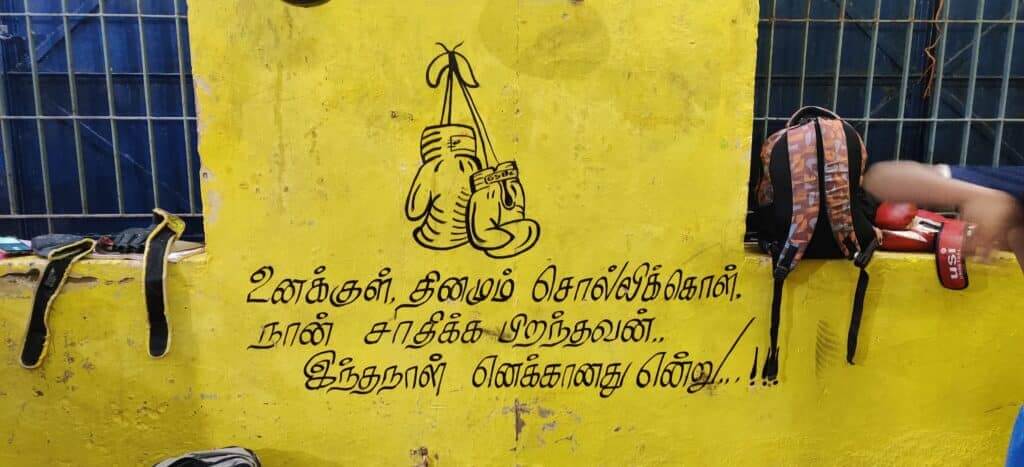 உனக்குள், தினமும் சொல்லிக்கொள்.
நான் சாதிக்க பிறந்தவன்..
இந்தநாள் எனக்கானது என்று...!!!
usi